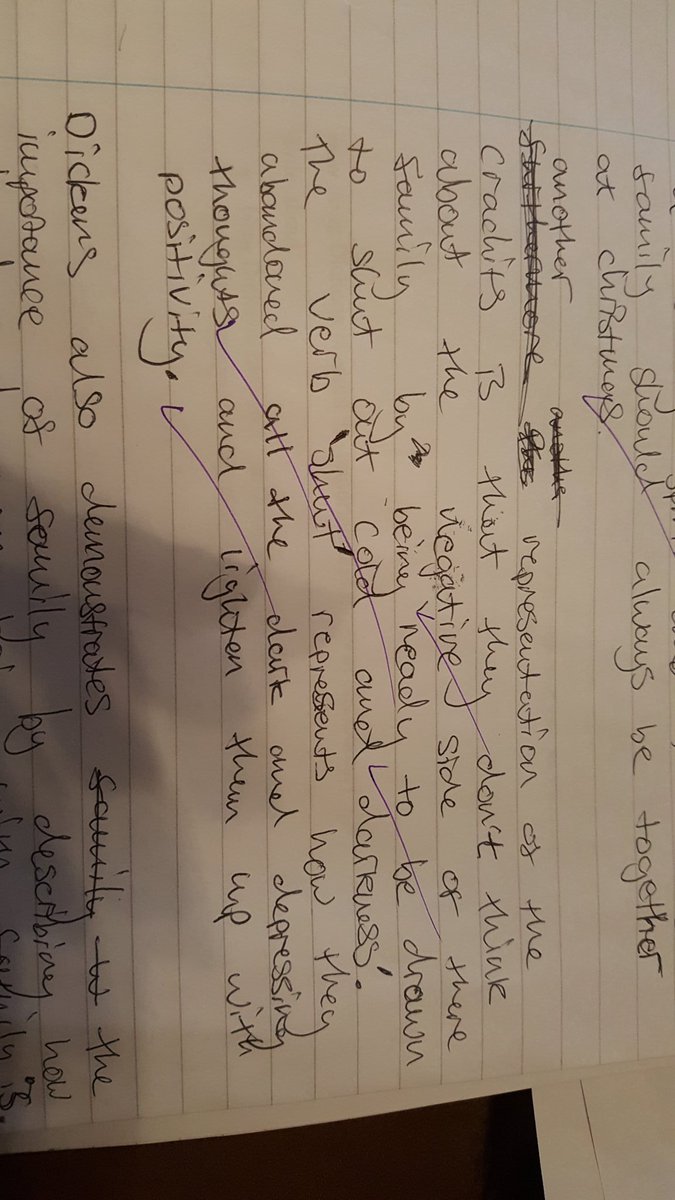 family should always be together
at christmas.
another
Furthermore representation of the
Crachits is that they don't think
about the negative side of there
family by being ready to be drawn
to shut out cold and darkness'.
the verb 'shut' represents how they
abandoned all the dark and depressing
thoughts and lighten them up with
positivity.
Dickens also demonstrates family the
importance of family by describing how